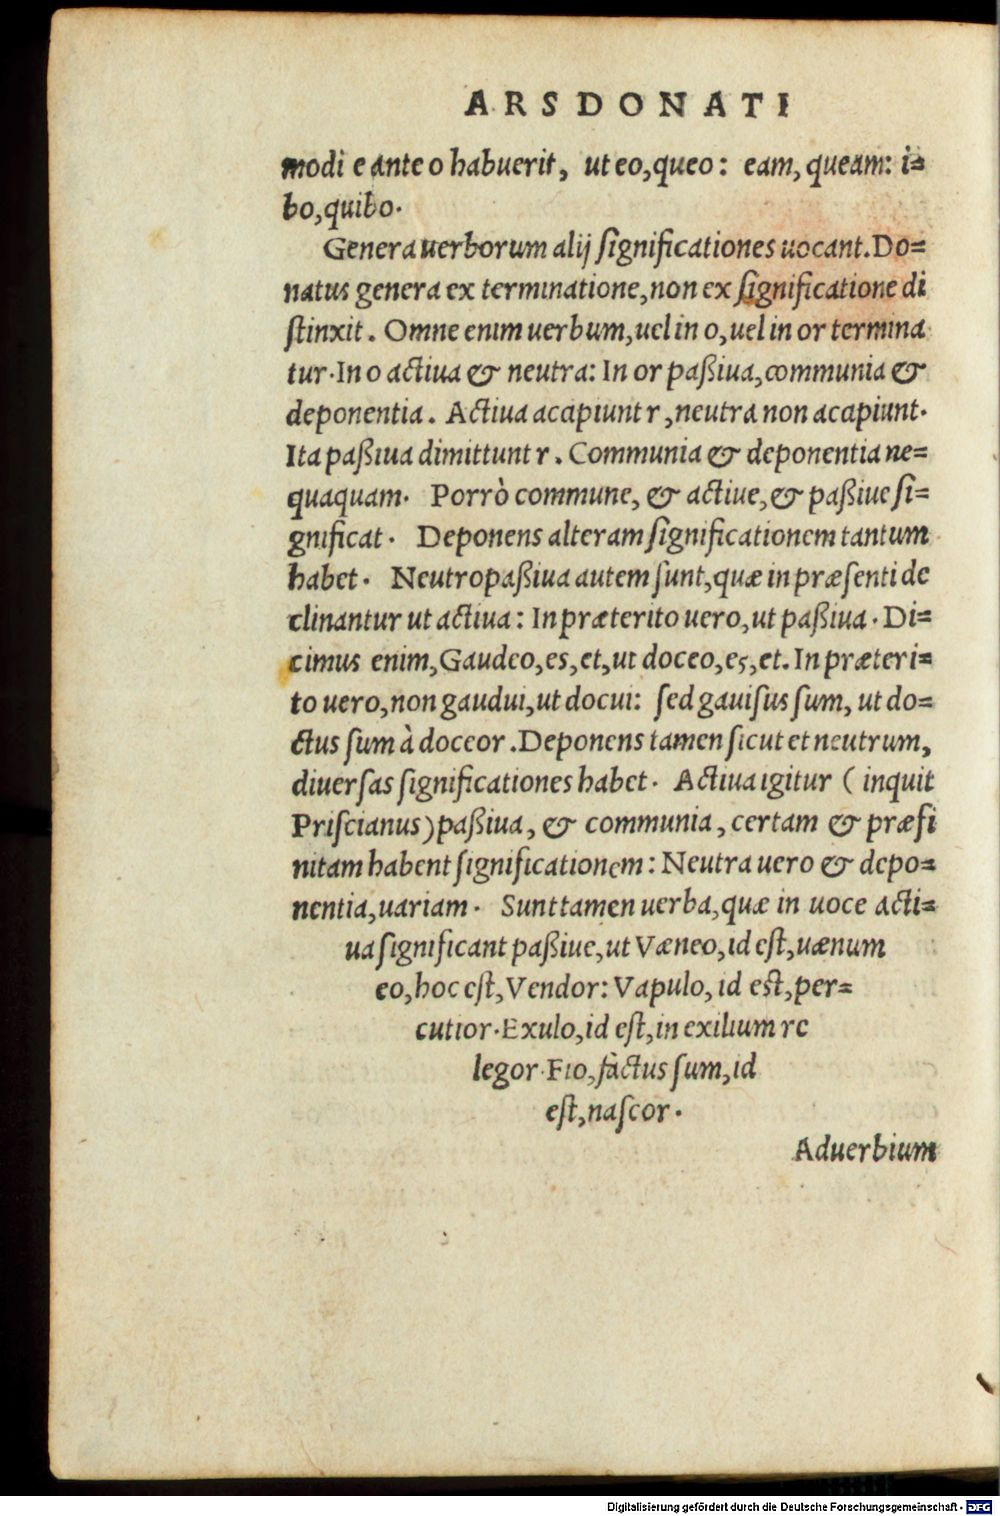 ARS DONATI
modi e ante o habuerit, ut eo, queo: eam, queam: i=
bo, quibo.
Genera uerborum alij ſignificationes uocant. Do=
natus genera ex terminatione, non ex ſignificatione di
ſtinxit. Omne enim uerbum, uel in o, uel in or termina
tur. In o actiua & neutra: In or paßiua, communia &
deponentia. Actiua accipiunt r, neutra non accipiunt.
Ita paßiua dimittunt r. Communia & deponentia ne=
quaquam. Porrò commune, & actiue, & paßiue ſi=
gnificat. Deponens alteram ſignificationem tantum
habet. Neutropaßiua autem ſunt, quæ in præſenti de
clinantur ut actiua: In præterito uero, ut paßiua. Di=
cimus enim, Gaudeo, es, et, ut doceo, es, et. In præteri=
to uero, non gaudui, ut docui: ſed gauiſus ſum, ut do=
ctus ſum à doceor. Deponens tamen ſicut et neutrum,
diuerſas ſignificationes habet. Actiua igitur ( inquit
Priſcianus) paßiua, & communia, certam & præfi
nitam habent ſignificationem: Neutra uero & depo=
nentia, uariam. Sunt tamen uerba, quæ in uoce acti=
ua ſignificant paßiue, ut Væneo, id eſt, uænum
eo, hoc eſt, Vendor: Vapulo, id eſt, per=
cutior. Exulo, id eſt, in exilium re
legor. Fio, fàctus ſum, id
eſt, naſcor.
Aduerbium
Digitalisierung gefördert durch die Deutsche Forschungsgemeinschaft - DFG